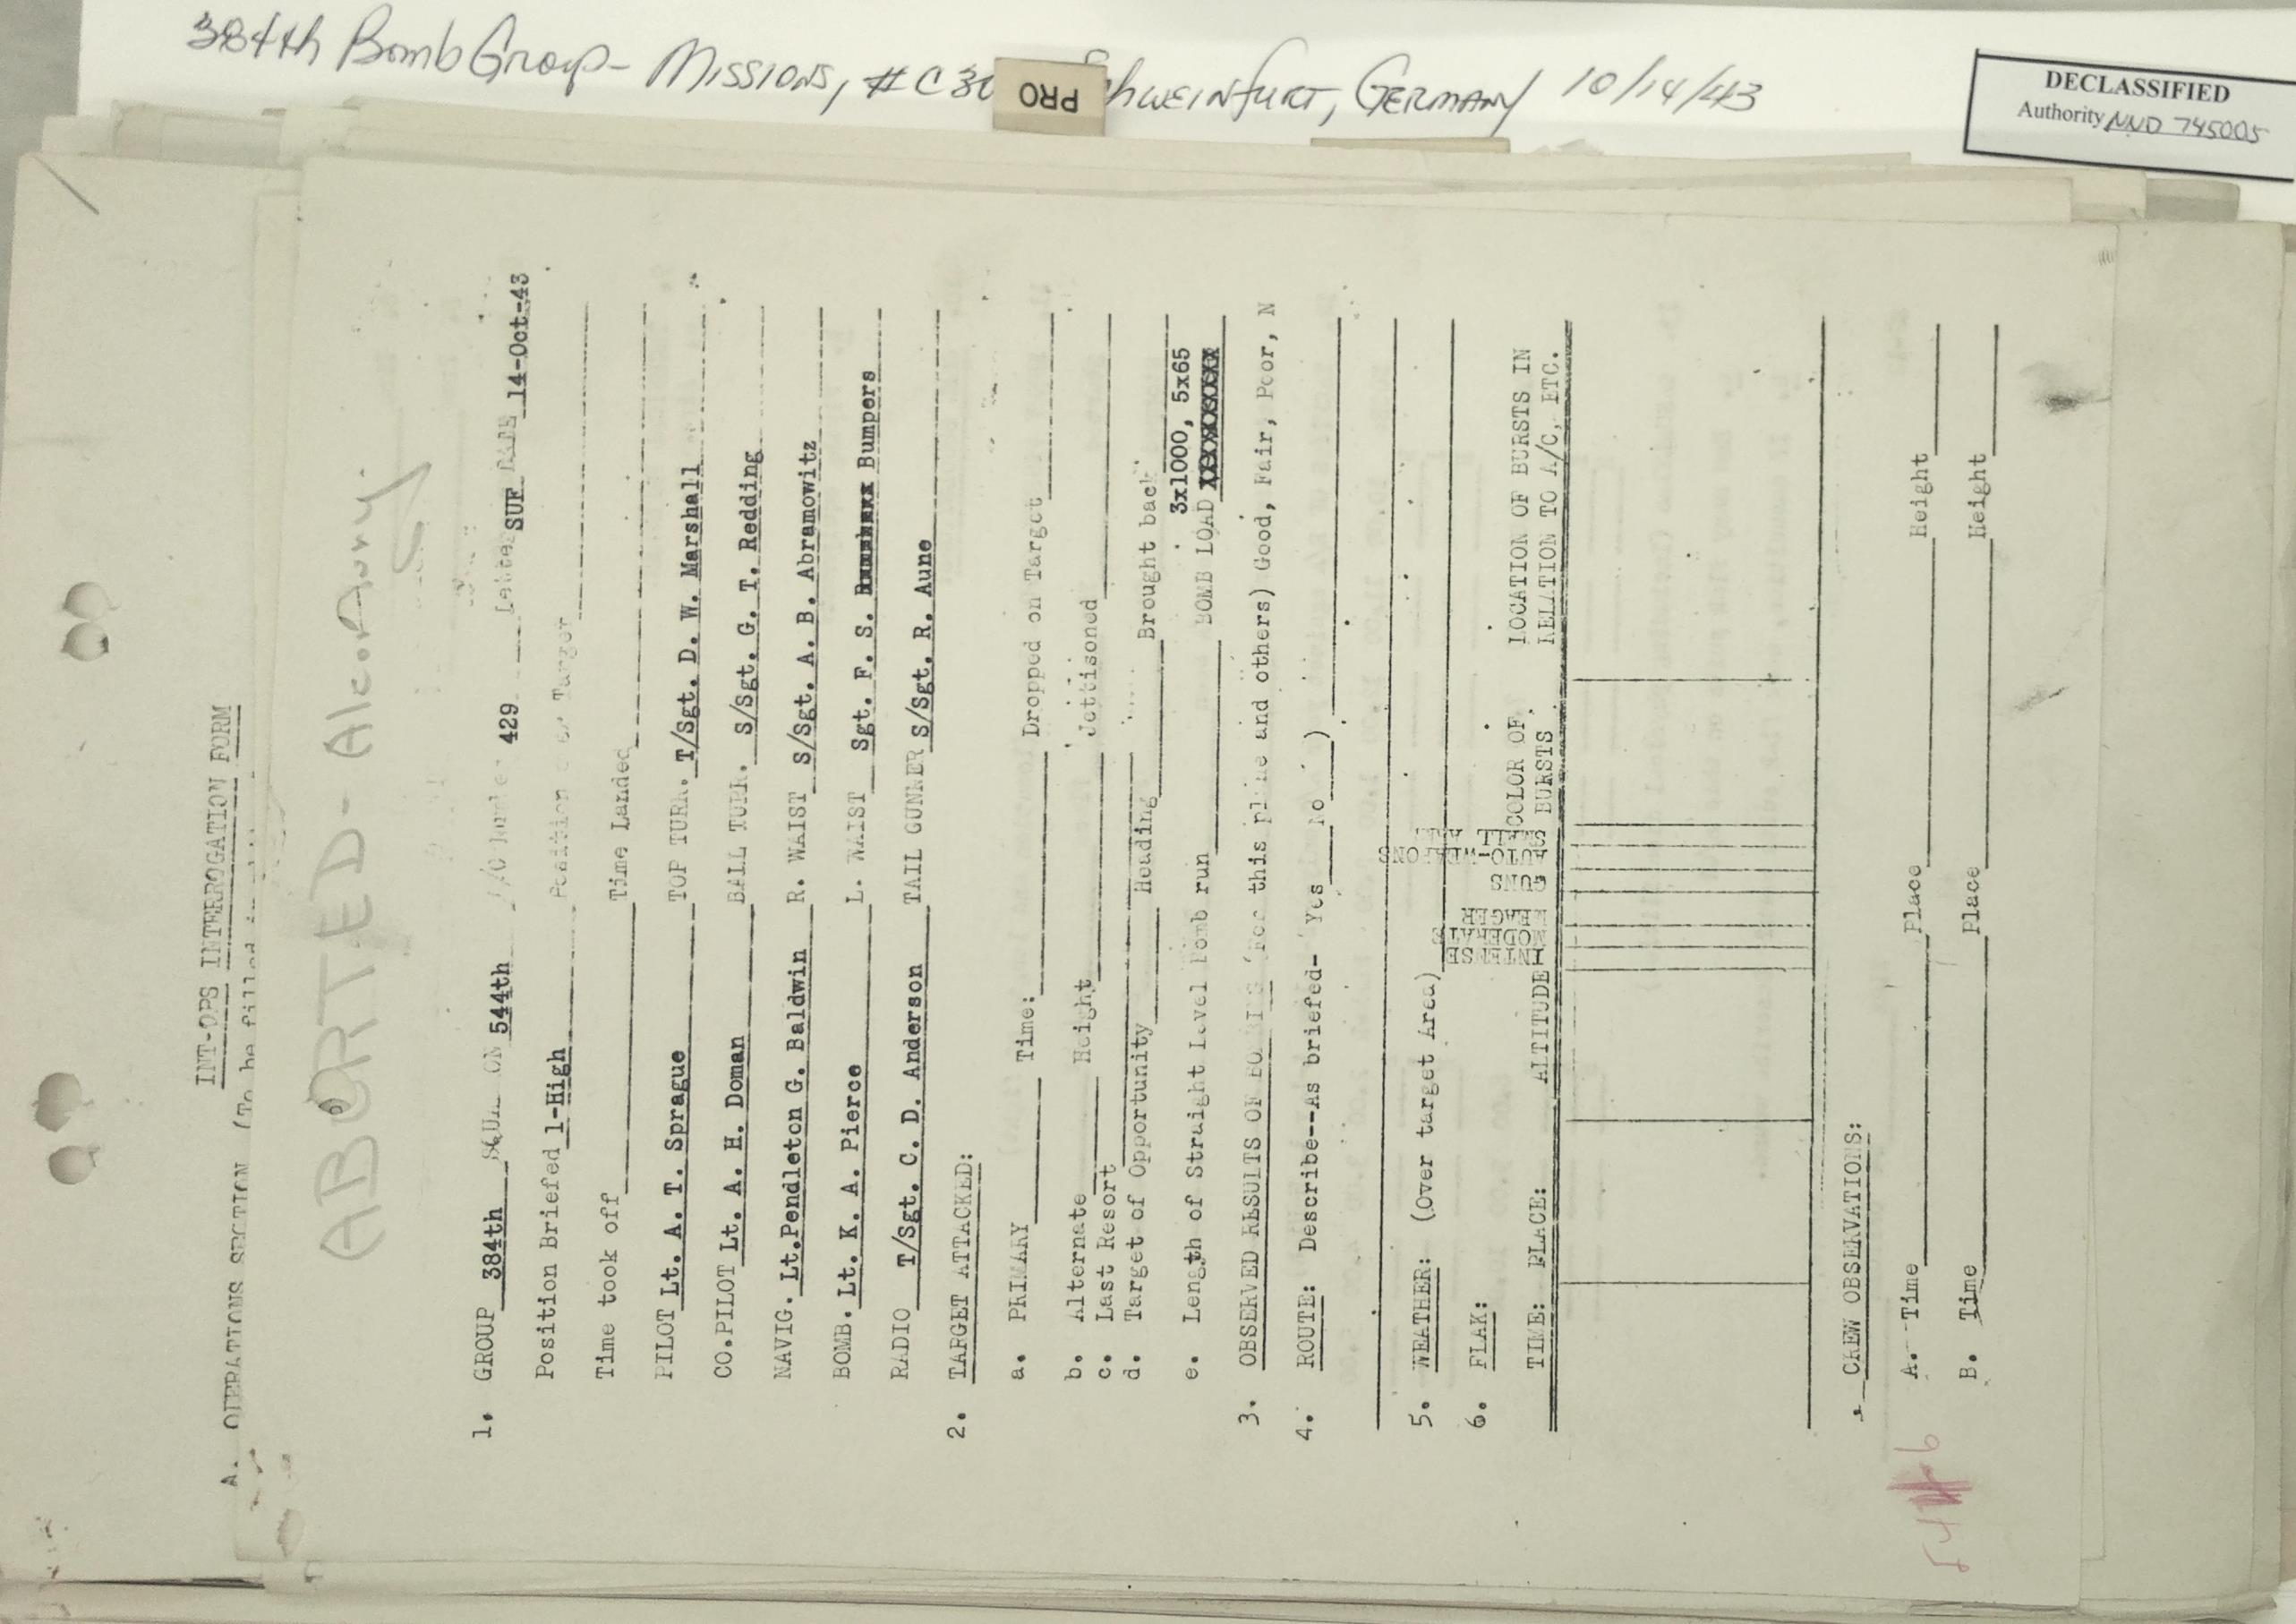 384th Bomb Group - Missions, #C30 chweinfurt, Germany 10/14/43
PRO
DECLASSIFIED
Authority NND 745005
INT-OPS INTERROGATION FORM
A. OPERATIONS SECTION (To be filled in
ABORTED - Alconbury
1. GROUP 384th SQUADRON 544th A/C Number 429 Letter SUF DATE 14-Oct-43
Position Briefed 1-High Position over Target
Time took off Time Landed
PILOT Lt. A. T. Sprague TOP TURR. T/Sgt. D. W. Marshall
CO.PILOT Lt. A. H. Doman BALL TURR. S/Sgt. G. T. Redding
NAVIG. Lt.Pendleton G. Baldwin R. WAIST S/Sgt. A. B. Abramowitz
BOMB. Lt. K. A. Pierce L. WAIST Sgt. F. S. Bumpers
RADIO T/Sgt. C. D. Anderson TAIL GUNNER S/Sgt. R. Aune
2. TARGET ATTACKED:
a. PRIMARY Time: Dropped on Target
b. Alternate Height Jettisoned
c. Last Resort
d. Target of Opportunity Heading Brought back
3x1000, 5x65
e. Length of Straight Level bomb run BOMB LOAD
3. OBSERVED RESULTS OF BOMBING (For this plane and others) Good, Fair, Poor, N
4. ROUTE: Describe--As briefed- Yes No )
5. WEATHER: (Over target Area)
6. FLAK:
TIME: PLACE: ALTITUDE INTENSE MODERATE MEAGER GUNS AUTO-WEAPONS COLOR OF BURSTS LOCATION OF BURSTS IN RELATION TO A/C, ETC.
CREW OBSERVATIONS:
A. Time Place Height
B. Time Place Height